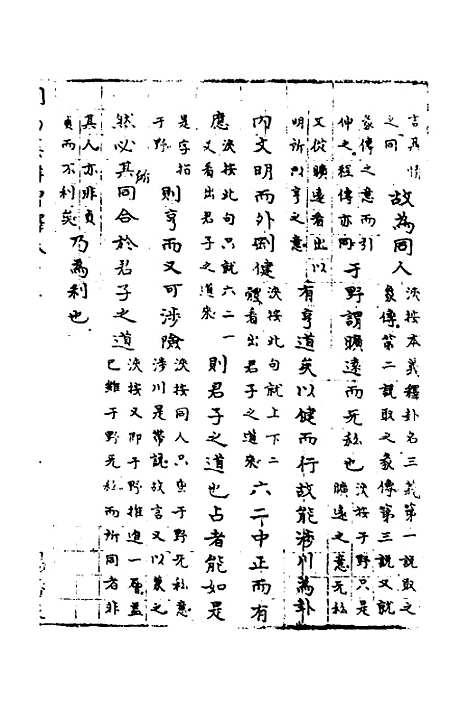 言其情
之同
故為同人
泱按本義釋卦名三義第一說取之
彖傳第二說取之彖傳第三說又就
彖傳之意而引
仲之程傳亦同
于野謂曠遠而无私也
泱按于野只是
曠遠之意无私
又從曠遠看出以
明所以亨之意
有亨道矣以健而行故能涉川為卦
內文明而外剛健
泱按此句就上下二
體看出君子之道來
六二中正而有
應
泱按此句只就六二一
爻看出君子之道來
則君子之道也占者能如是
是字指
于野
則亨而又可涉險
泱按同人只重于野无私意
涉川是帶說故言又以美之
然必其同合於君子之道
泱按又即于野推進一層蓋
已雖于野无私而所同者非
其人亦非貞
貞而不利矣
乃為利也